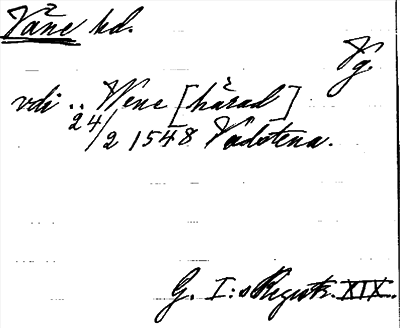 Våne hd.
Vg.
vdi .. Wene [härad]
24/2 1548 Vadstena.
G. I:s Registr. XIX.